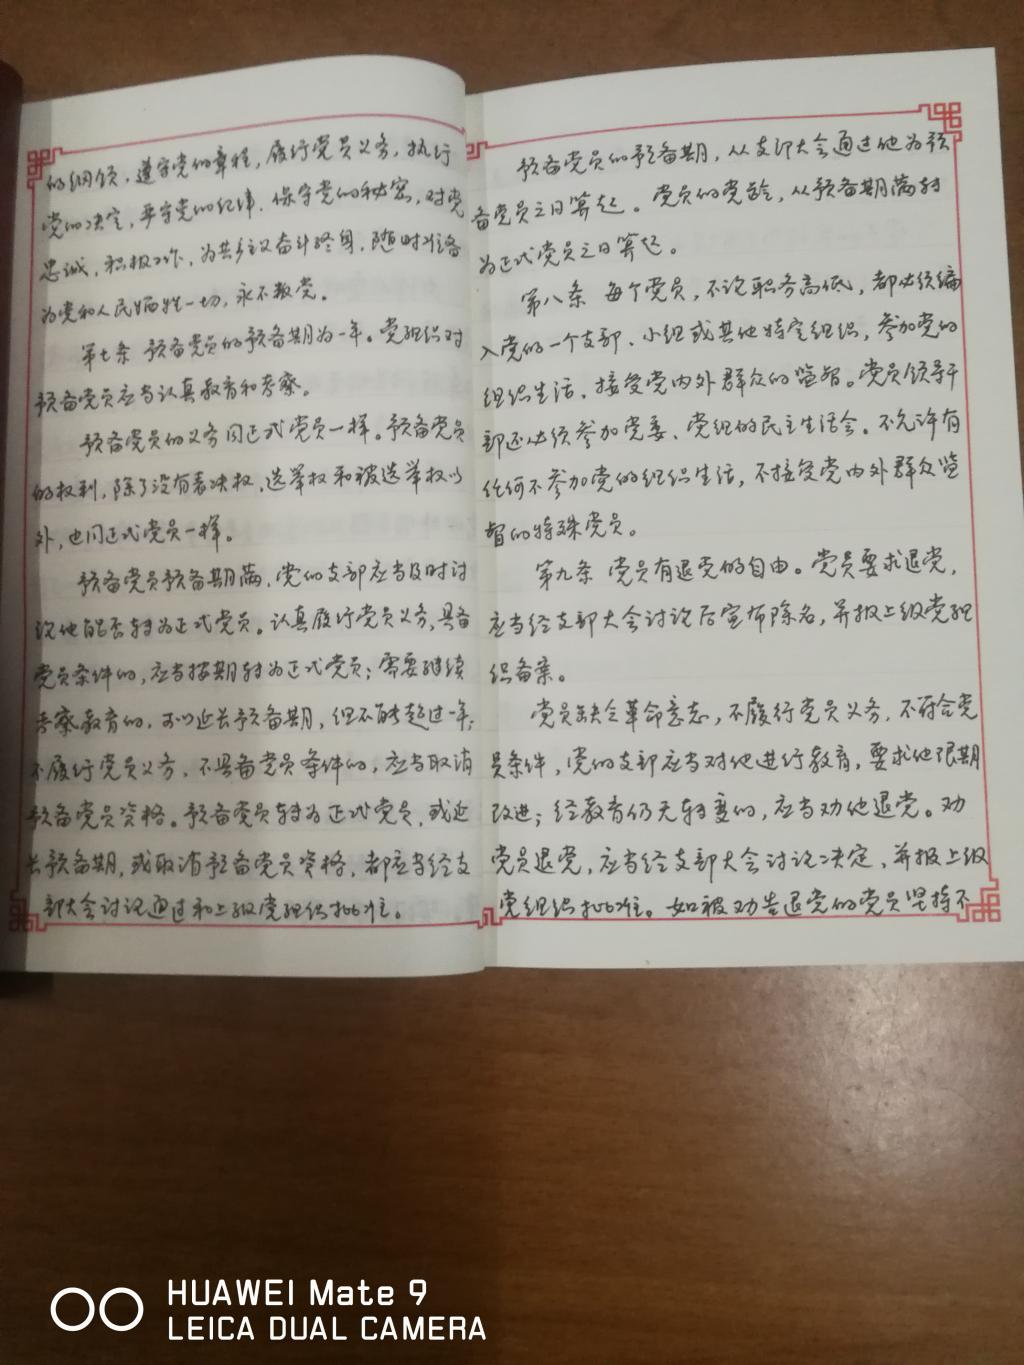 的纲领，遵守党的章程，履行党员义务，执行
党的决定，严守党的纪律，保守党的秘密，对党
忠诚，积极工作，为共产主义奋斗终身，随时准备
为党和人民牺牲一切，永不叛党。
第七条 预备党员的预备期为一年。党组织对
预备党员应当认真教育和考察。
预备党员的义务同正式党员一样。预备党员
的权利，除了没有表决权、选举权和被选举权以
外，也同正式党员一样。
预备党员预备期满，党的支部应当及时讨
论他能否转为正式党员。认真履行党员义务，具备
党员条件的，应当按期转为正式党员；需要继续
考察教育的，可以延长预备期，但不能超过一年；
不履行党员义务，不具备党员条件的，应当取消
预备党员资格。预备党员转为正式党员，或延
长预备期，或取消预备党员资格，都应当经支
部大会讨论通过和上级党组织批准。
预备党员的预备期，从支部大会通过他为预
备党员之日算起。党员的党龄，从预备期满转
为正式党员之日算起。
第八条 每个党员，不论职务高低，都必须编
入党的一个支部、小组或其他特定组织，参加党的
组织生活，接受党内外群众的监督。党员领导干
部还必须参加党委、党组的民主生活会。不允许有
任何不参加党的组织生活，不接受党内外群众监
督的特殊党员。
第九条 党员有退党的自由。党员要求退党，
应当经支部大会讨论后宣布除名，并报上级党组
织备案。
党员缺乏革命意志，不履行党员义务，不符合党
员条件，党的支部应当对他进行教育，要求他限期
改进；经教育仍无转变的，应当劝他退党。劝
党员退党，应当经支部大会讨论决定，并报上级
党组织批准。如被劝告退党的党员坚持不
HUAWEI Mate 9
LEICA DUAL CAMERA